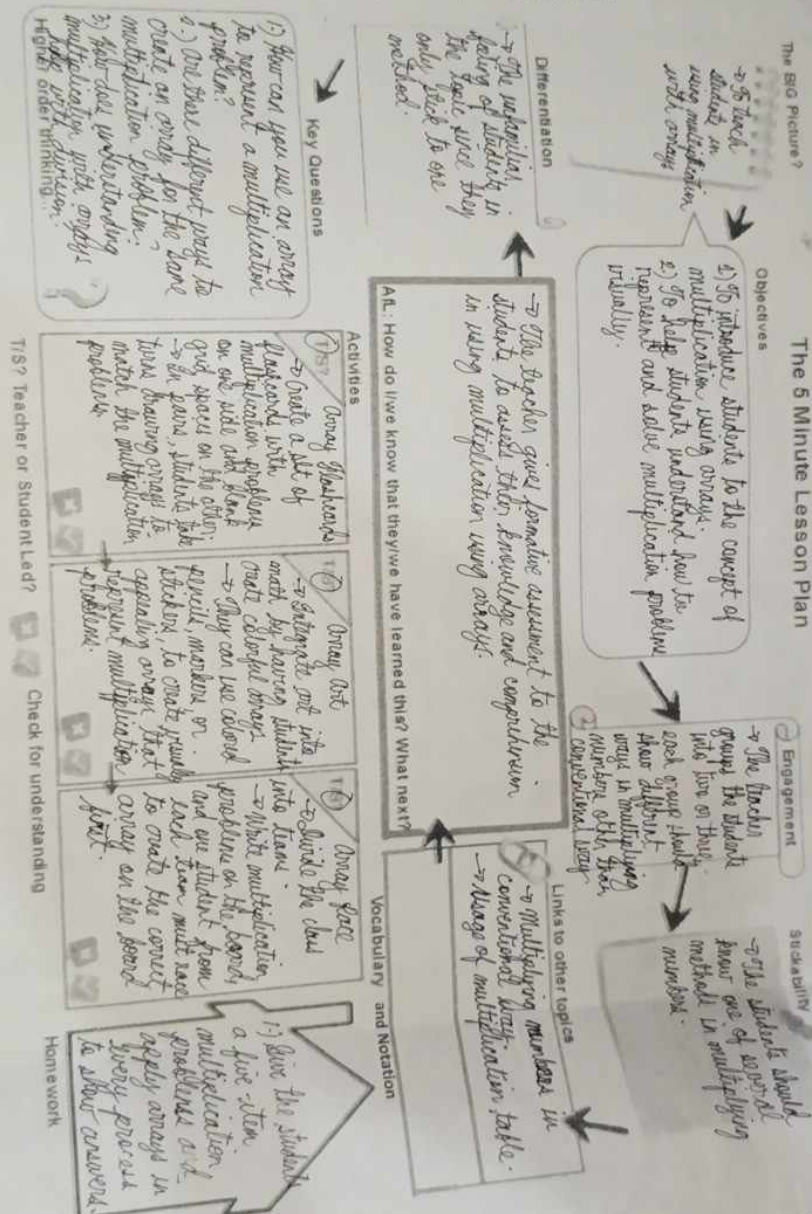 The 5 Minute Lesson Plan
The BIG Picture?
→ To teach
students in
using multiplication
with arrays
Objectives
1.) To introduce students to the concept of
multiplication using arrays.
2.) To help students understand how to
represent and solve multiplication problems
visually.
Engagement
→ The teacher
groups the students
into two or three.
each group should
show different
ways in multiplying
numbers other than
conventional way
Stickability
→ The students should
know one of several
methods in multiplying
numbers.
Differentiation
→ The unfamiliar
feeling of students in
the topic since they
only stick to one
method.
→ The teacher gives formative assessment to the
students to assess their knowledge and comprehension
in using multiplication using arrays.
AfL: How do I/we know that they/we have learned this? What next?
Links to other topics
→ Multiplying numbers in
conventional way.
→ Usage of multiplication table.
Vocabulary and Notation
Key Questions
1.) How can you use an array
to represent a multiplication
problem?
2.) Are there different ways to
create an array for the same
multiplication problem?
3.) How does understanding
multiplication with arrays
help with division?
Higher order thinking...
Activities
T/S?
Array Flashcards
→ Create a set of
flashcards with
multiplication problems
on one side and blank
grid spaces on the other.
→ In pairs, students take
turns drawing arrays to
match the multiplication
problems.
T/S
Array Art
→ Integrate art into
math by having students
create colorful arrays
→ They can use colored
pencils, markers, or
stickers, to create visually
appealing arrays that
represent multiplication
problems.
T/S
Array Race
→ Divide the class
into teams.
→ Write multiplication
problems on the boards
and one student from
each team must race
to create the correct
array on the board
first.
1.) Give the students
a five-item
multiplication
problems and
apply arrays in
every process
to show answers.
Homework
T/S? Teacher or Student Led?
Check for understanding